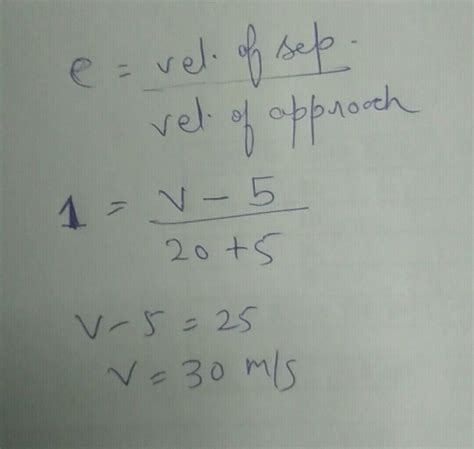 e = vel. of sep.
vel. of approach
1 = v - 5
20 + 5
v - 5 = 25
v = 30 m/s